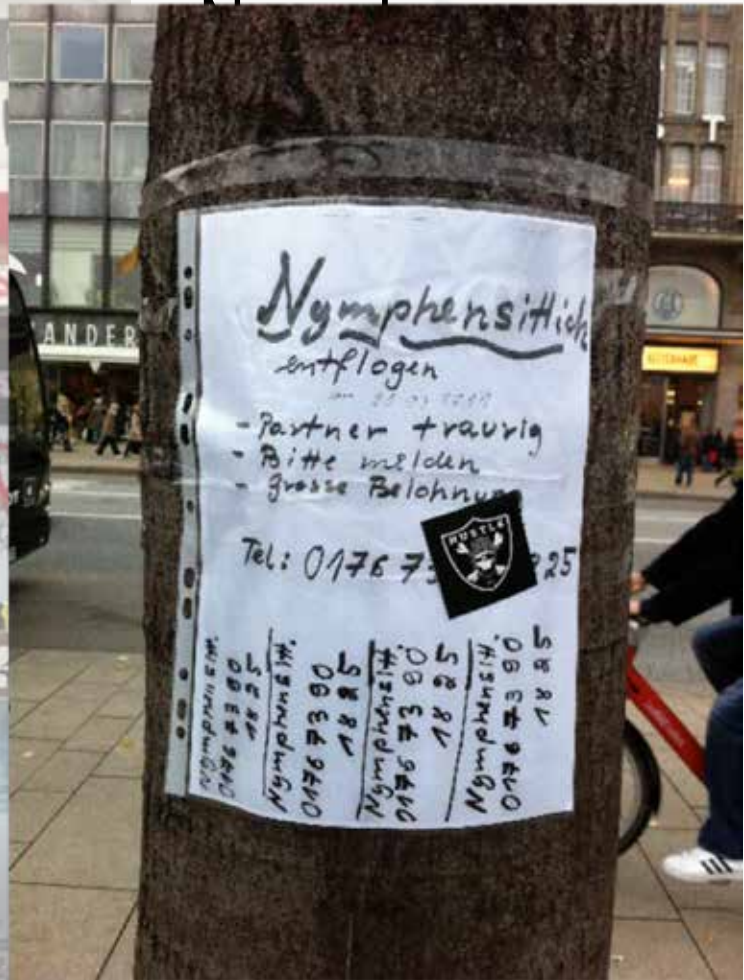 ANDER
Nymphensittich
entflogen
- Partner traurig
- Bitte melden
- grosse Belohnung
Tel: 0176 73 25
HUSTLE
Nymphensitt.
0176 73 90
18 25
Nymphensitt.
0176 73 90
18 25
Nymphensitt.
0176 73 90
18 25
Nymphensitt.
0176 73 90
18 25